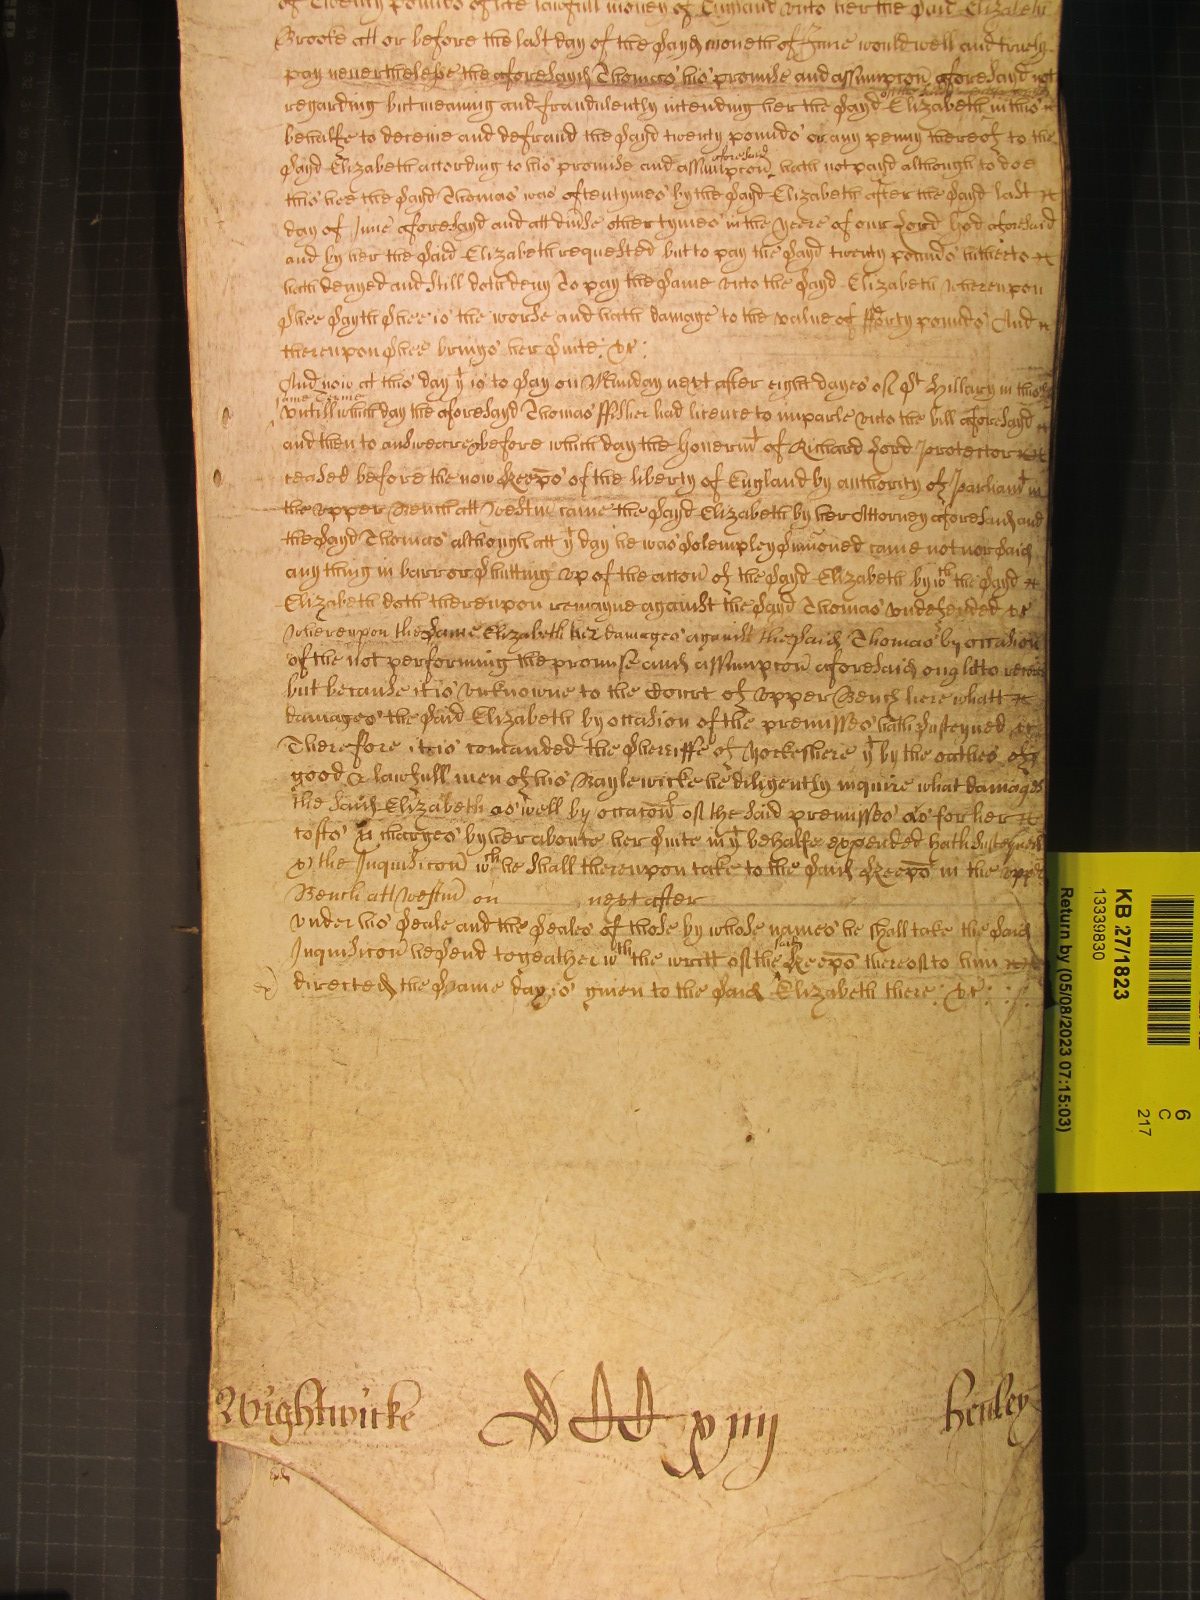 of Twenty pounds of like lawfull money of England unto her the said Elizabeth
Brooke att or before the last day of the sayd moneth of June would well and truely
pay neverthelesse the aforesayd Thomas his promise and assumpcon aforesaid not
regarding but meaning and fraudulently intending her the sayd Elizabeth in this
behalfe to deceive and defraud the sayd twenty pounds or any penny thereof to the
sayd Elizabeth according to his promise and assumpcon aforesaid hath not payd although to doe
this hee the sayd Thomas was oftentymes by the sayd Elizabeth after the sayd last
day of June aforesayd and att divse other tymes in the yeere of our Lord God aforesaid
and by her the said Elizabeth requested but to pay the sayd twenty pounds hitherto
hath denyed and still doth deny To pay the same unto the sayd Elizabeth whereupon
shee sayth shee is the worse and hath damage to the value of fforty pounds And
thereupon shee brings her suite &c
And now at this day yt is to say on Munday next after eight dayes of St Hillary in this
same Terme
untill which day the aforesayd Thomas ffisher had licence to imparle unto the bill aforesayd
and then to answeare &c before which day the Governmt of Richard Lord Protector
ceased before the now Keeps of the liberty of England by authority of Parliamt in
the upper Bench att Westm came the sayd Elizabeth by her Attorney aforesaid and
the sayd Thomas although att yt day he was solempley sumoned came not nor said
any thing in barr or shutting up of the accon of the sayd Elizabeth by wch the sayd
Elizabeth doth thereupon remayne against the sayd Thomas undefended &c
Whereupon the same Elizabeth her damages against the said Thomas by occasion
of the not performing the promise and assumpcon aforesaid ought to recover
but because it is unknowne to the Court of upper Bench here what
damages the said Elizabeth by occasion of the premisses hath susteyned
Therefore it is comanded the sheriffe of Yorkeshere yt by the oathes of
good & lawfull men of his Baylewicke he diligently inquire what damages
the said Elizabeth as well by occacon of the said premisses as for her
costs & charges by her aboute her suite in yt behalfe expended hath susteyned
& the Inquisicon wch he shall thereupon take to the said Keeps in the upper
Bench att Westm on next after
under his seale and the seales of those by whose names he shall take the said
Inquisicon he send togeather wth the writt of the said Keeps thereof to him
directed the same day is given to the said Elizabeth there &c
Wightwicke
xiiij
Henley
KB 27/1823
13339830
Return by (05/08/2023 07:15:03)
6
C
217